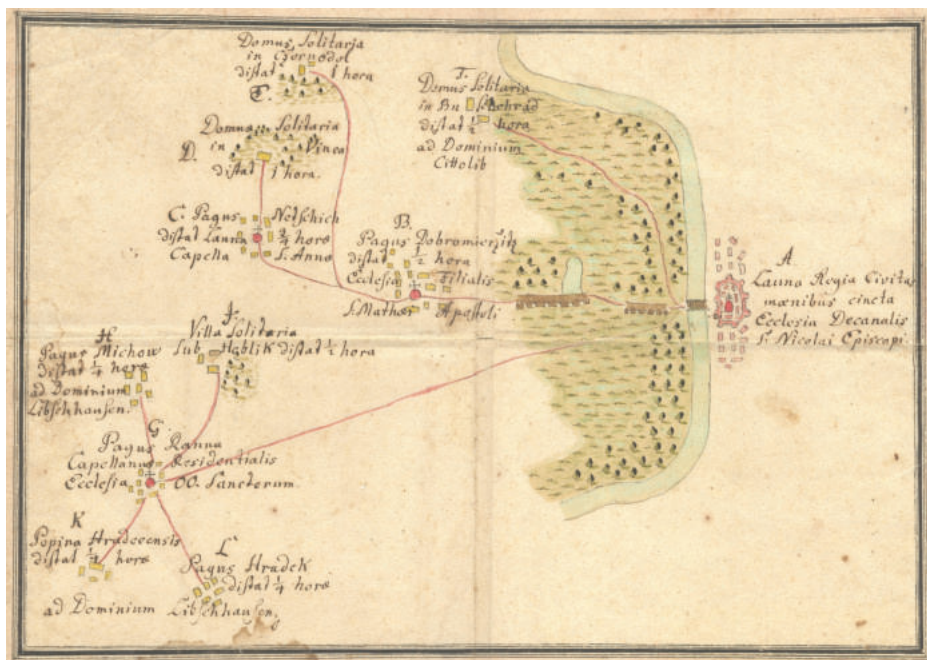 Domus Solitaria
in Czernodol
distat 1 hora
E.
F.
Domus Solitaria
in
distat ½ hora
ad Dominium
Cittolib
Domus Solitaria
D. in Vinea
distat 1 hora.
C. Pagus Netschich
distat Launa ¾ hore
Capella S. Anna
B.
Pagus Dobromierzitz
distat ½ hora
Ecclesia Filialis
S. Mathæi Apostoli
A
Launa Regia Civitas
mœnibus cincta
Ecclesia Decanalis
S. Nicolai Episcopi.
J.
Villa Solitaria
Sub Hablik distat ½ hora
H
Pagus Michow
distat ¼ hore
ad Dominium
Libschhausen.
G
Pagus Ranna
Capellanus Residentialis
Ecclesia OO. Sanctorum.
K
Popina Hradecensis
distat ¼ hore
ad Dominium
L
Pagus Hradek
distat ¼ hore
Libschhausen